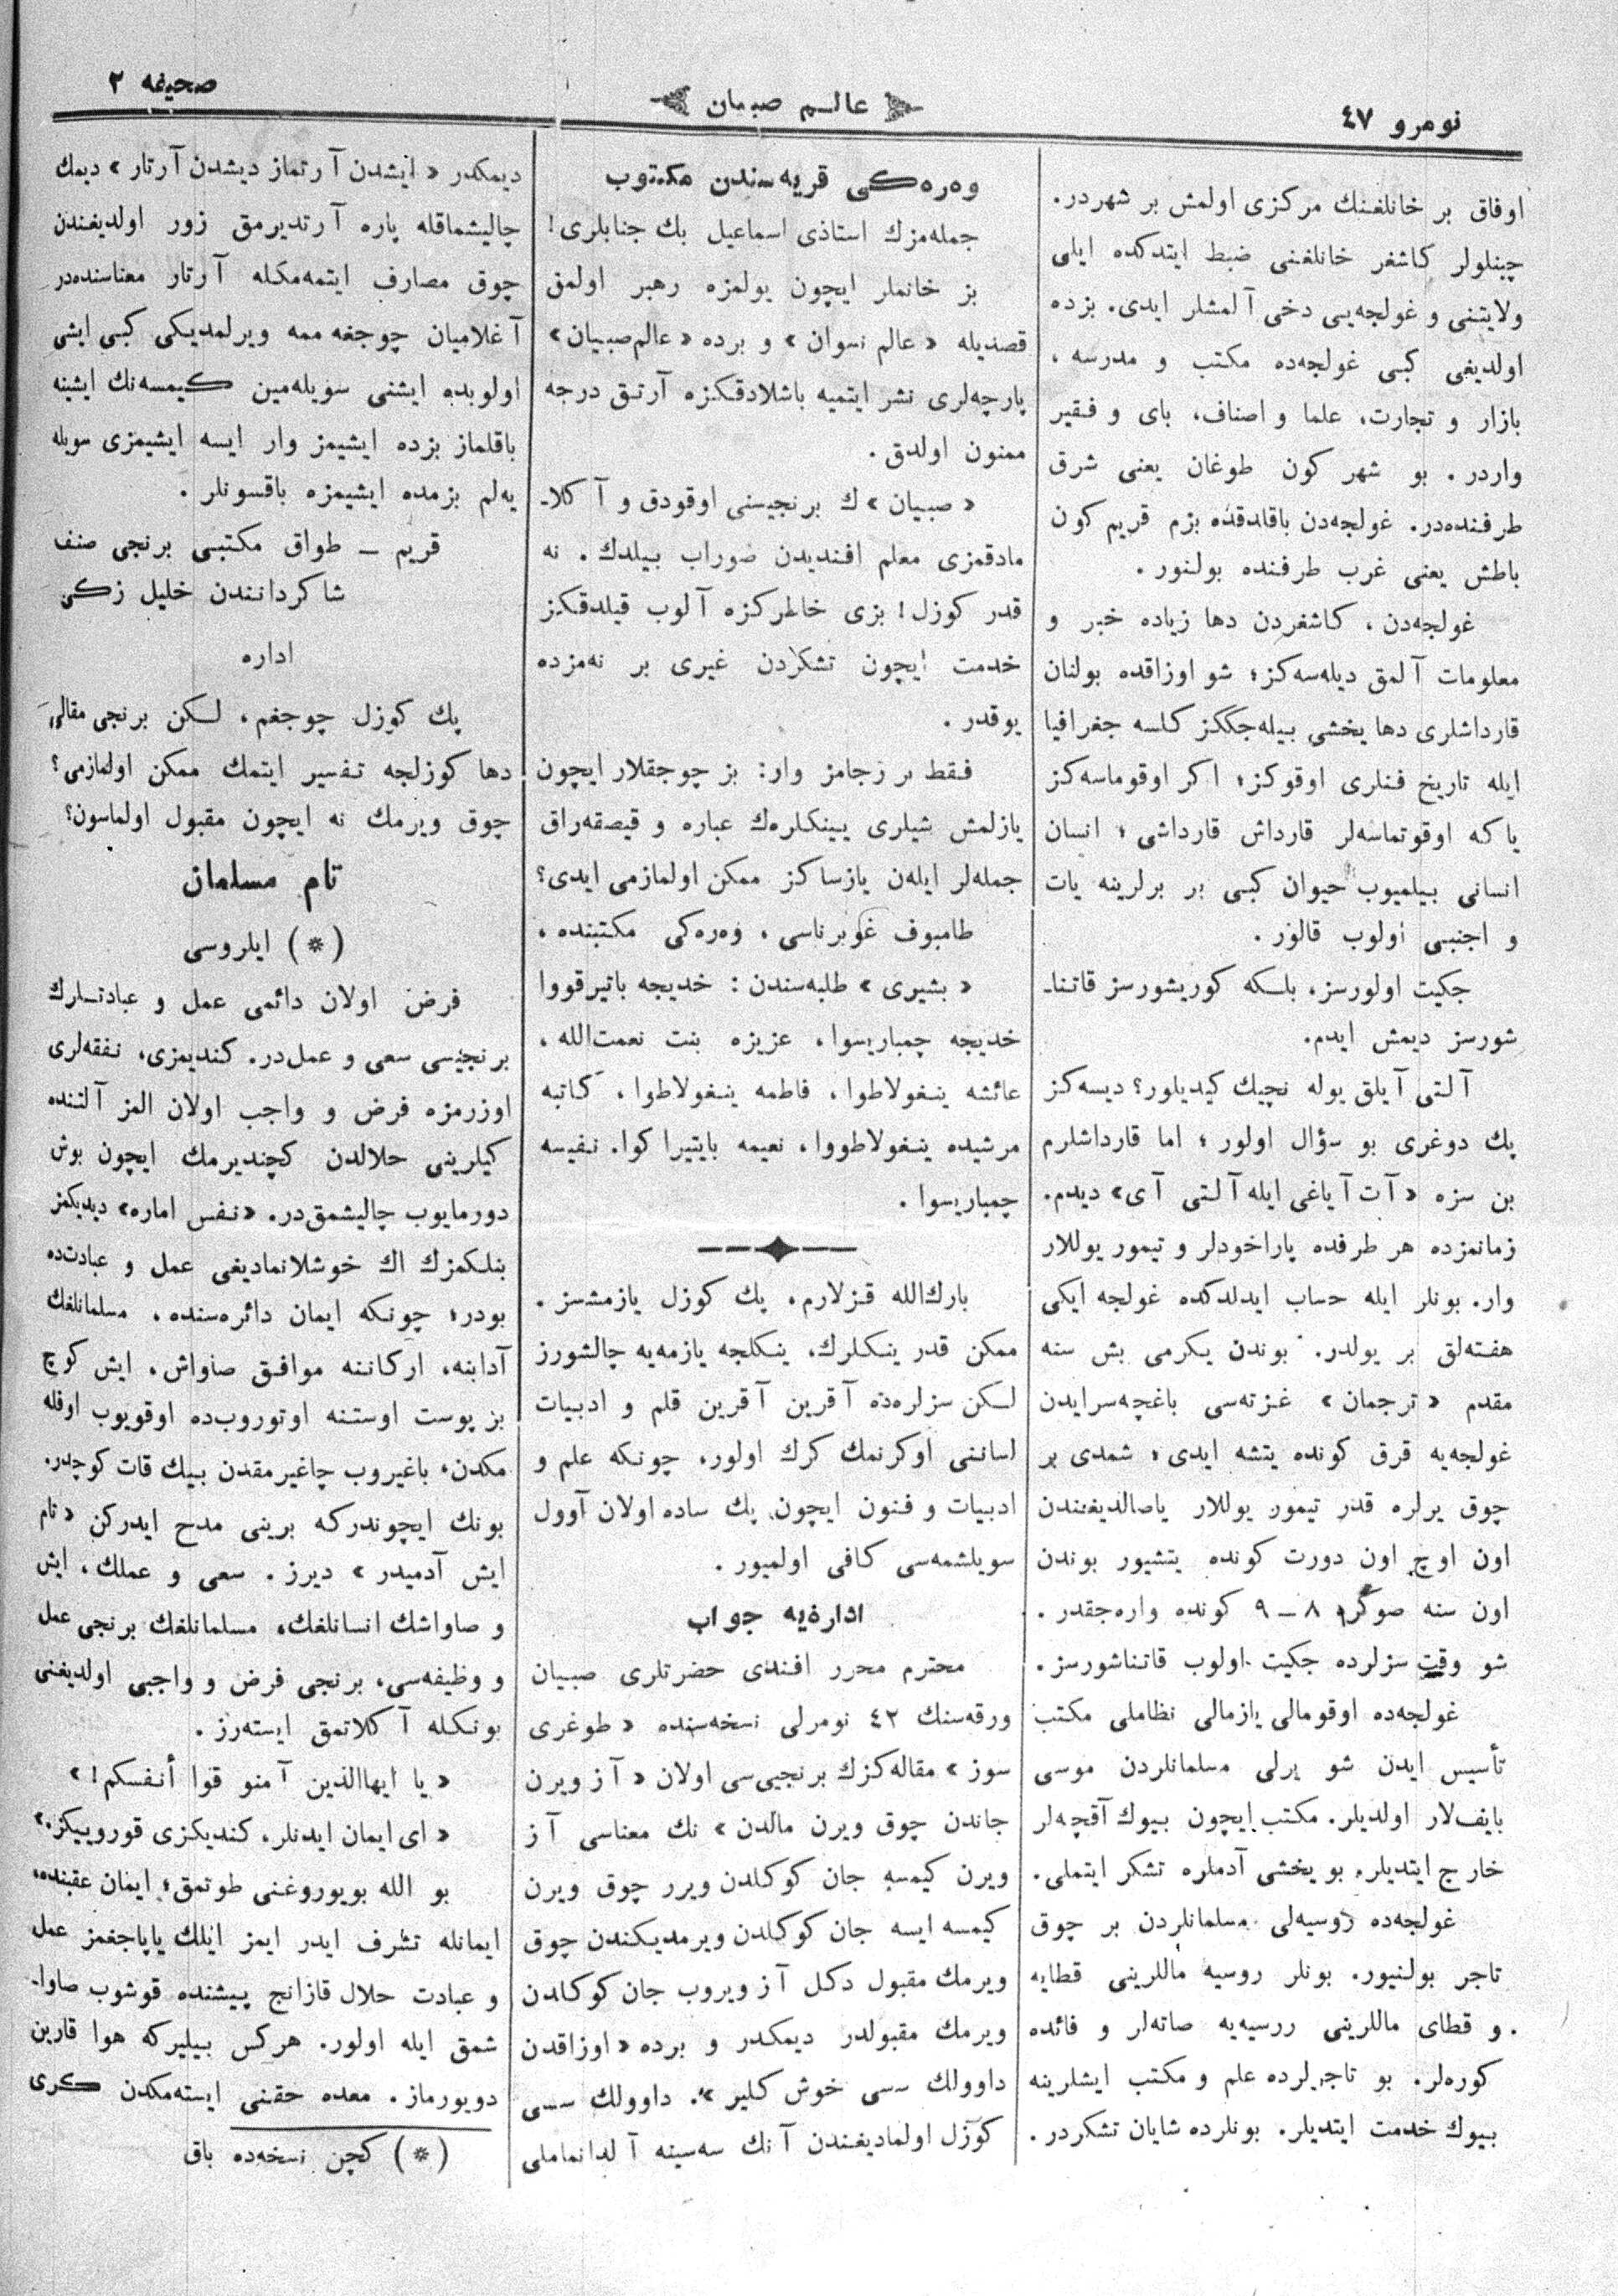 نومرو ٤٧
عالـم صبیان
صحیفه ٢
اوفاق بر خانلغنك مركزی اولمش بر شهردر.
چینلولر كاشغر خانلغنی ضبط ایتدكده ایلی
ولایتنی و غولجه‌یی دخی آلمشلر ایدی. بزده
اولدیغی كبی غولجه‌ده مكتب و مدرسه ،
بازار و تجارت، علما و اصناف، بای و فـقیر
واردر . بو شهر كون طوغان یعنی شرق
طرفنده‌در. غولجه‌دن باقلدقده بزم قریم كون
باطش یعنی غرب طرفنده بولـنور .
غولجه‌دن ، كاشغردن دها زیاده خبر و
معلومات آلمق دیله‌سه‌كز؛ شو اوزاقده بولنان
قارداشلری دها یخشی بیله‌جككز كلسه جغرافیا
ایله تاریخ فـنلری اوقوكز؛ اكر اوقوماسه‌كز
یا كه اوقوتماسه‌لر قارداش قارداشی ؛ انسان
انسانی بیلمیوب حیوان كبی بر برلرینه یات
و اجنبی اولوب قالور .
جكیت اولورسز، بلـكه كوریشورسز قاتناـ
شورسز دیمش ایدم.
آلتی آیلق یوله نچیك كیدیلور؟ دیسه‌كز
پك دوغری بو سؤال اولور ؛ اما قارداشلرم
بن سزه « آت آیاغی ایله آلـتی آی» دیدم.
زمانمزده هر طرفده پاراخودلر و تیمور یوللار
وار. بونلر ایله حساب ایدلدكده غولجه ایكی
هفـته‌لق بر یولدر. بوندن یكرمی بش سنه
مقدم « ترجمان » غـزته‌سی باغچه‌سرایدن
غولجه‌یه قرق كونده یتشه ایدی ؛ شمدی پر
چوق یرلره قدر تیمور یوللار یاصالدیغندن
اون اوچ اون دورت كونده یتشیور بوندن
اون سنه صوكره ٨ – ٩ كونده واره‌جقدر .
شو وقت سزلرده جكیت اولوب قاتناشورسز.
غولجه‌ده اوقومالی یازمالی نظاملی مكتب
تأسیس ایدن شو یرلی مسلمانلردن موسی
بایف‌لار اولدیلر. مكتب ایچون بیوك آقچه‌لر
خارج ایتدیلر، بو یخشی آدملره تشكر ایتملی.
غولجه‌ده روسیه‌لی مسلمانلردن بر چوق
تاجر بولـنیور. بونلر روسیه ماللرینی قطایه
و قطای ماللرینی روسیه‌یه صاته‌لر و فائده
كوره‌لر. بو تاجرلرده علم و مكتب ایشلرینه
بیوك خدمت ایتدیلر. بونلرده شایان تشكردر.
وه‌ره‌كی قریه‌سندن مكتوب
جمله‌مزك استاذی اسماعیل بك جنابلری!
بز خانملر ایچون یولمزه رهبر اولمق
قصدیله « عالم نسوان » و برده « عالم‌صبیان »
پارچه‌لری نشر ایتمیه باشلادقـكزه آرتـق درجه
ممنون اولدق .
« صبیان » ك برنجیسنی اوقودق و آكلاـ
مادقمزی معلم افـندیدن صوراب بیلدك . نه
قدر كوزل! بزی خاطركزه آلوب قیلدقـكز
خدمت ایچون تشكردن غیری بر نه‌مزده
یوقدر .
فـقط بر رجامز وار: بز چوجقلار ایچون
یازلمش شیلری یینكلره‌ك عباره و قیصقه‌راق
جمله‌لر ایله‌ن یازساكز ممكن اولمازمی ایدی؟
طامبوف غوبرناسی ، وه‌ره‌كی مكتبنده ،
« بشیری » طلبه‌سندن : خدیجه باتیرقووا
خدیجه چمباریسوا، عزیزه بنت نعمت‌الله ،
عائشه ینـغولاطوا، فاطمه ینـغولاطوا ، كاتبه
مرشیده ینـغولاطووا، نعیمه باییتراكوا. نـفیسه
چمباریسوا .
بارك‌الله قـزلارم، پك كوزل یازمشسز .
ممكن قدر ینـكلرك، ینـكلجه یازمه‌یه چالشورز
لـكن سزلره‌ده آقرین آقرین قلم و ادبیات
لساننی اوكرنمك كرك اولور، چونكه علم و
ادبیات و فـنون ایچون پك ساده اولان آوول
سویلشمه‌سی كافی اولمیور .
اداره‌یه جواب
محترم محرر افـندی حضرتلری صبیان
ورقه‌سنك ٤٢ نومرلی نسخه‌سنده « طوغری
سوز » مقاله‌كزك برنجیی‌سی اولان « آز ویرن
جاندن چوق ویرن مالدن » نك معناسی آز
ویرن كیمسه جان كوكلدن ویرر چوق ویرن
كیمسه ایسه جان كوكلدن ویرمدیـكندن چوق
ویرمك مقبول دكل آز ویروب جان كوكلدن
ویرمك مقبولدر دیمكدر و برده « اوزاقدن
داوولك سسی خوش كلیر ». داوولك سسی
كوزل اولمادیغندن آنك سه‌سینه آلدانماملی
دیمكدر « ایشدن آرتماز دیشدن آرتار » دیمك
چالیشماقله پاره آرتدیرمق زور اولدیغندن
چوق مصارف ایتمه‌مكله آرتار معناسنده‌در
آغلامیان چوجغه ممه ویرلمدیكی كبی ایشی
اولوبده ایشنی سویله‌مین كیمسه‌نك ایشینه
باقلماز بزده ایشیمز وار ایسه ایشیمزی سویله
یه‌لم بزمده ایشیمزه باقسونلر .
قریم – طواق مكتبی برنجی صنف
شاكردانندن خلیل زكی
اداره
پك كوزل چوجغم، لـكن برنجی
دها كوزلجه تـفسیر ایتمك ممكن اولمازمی؟
چوق ویرمك نه ایچون مقبول اولماسون؟
تام مسلمان
(*) ایلروسی
فرض اولان دائمی عمل و عبادتـلرك
برنجیسی سعی و عمل‌در. كندیمزی، نـفقه‌لری
اوزرمزه فرض و واجب اولان المز آلتنده
كیلرینی حلالدن كچندیرمك ایچون بوش
دورمایوب چالیشمق‌در. «نـفس اماره» دیدیكمز
بنلـكمزك اك خوشلانمادیغی عمل و عبادت‌ده
بودر؛ چونكه ایمان دائره‌سنده ، مسلمانلغك
آدابنه، اركاننه موافـق صاواش، ایش كوچ
بز پوست اوستـنه اوتوروب‌ده اوقویوب اوفله
مكدن، باغیروب چاغیرمقدن بیك قات كوچدر.
بونك ایچوندركه برینی مدح ایدركن « تام
ایش آدمیدر » دیرز . سعی و عملك ، ایش
و صاواشك انسانلغك، مسلمانلغك برنجی عمل
و وظیفه‌سی، برنجی فرض و واجبی اولدیغنی
بونـكله آكلاتمق ایسته‌رز .
« یا ایهاالذین آمنو قوا أنـفسكم! »
« ای ایمان ایدنلر، كندیكزی قورویـیكز.»
بو الله بویوروغـنی طوتمق؛ ایمان عقبنده،
ایمانله تشرف ایدر ایمز ایلك یاپاجغمز عمل
و عبادت حلال قازانج پیشنده قوشوب صاواـ
شمق ایله اولور. هركس بیلیركه هوا قارین
دویورماز . معده حقـنی ایسته‌مكدن كری
(*) كچن نسخه‌ده باق